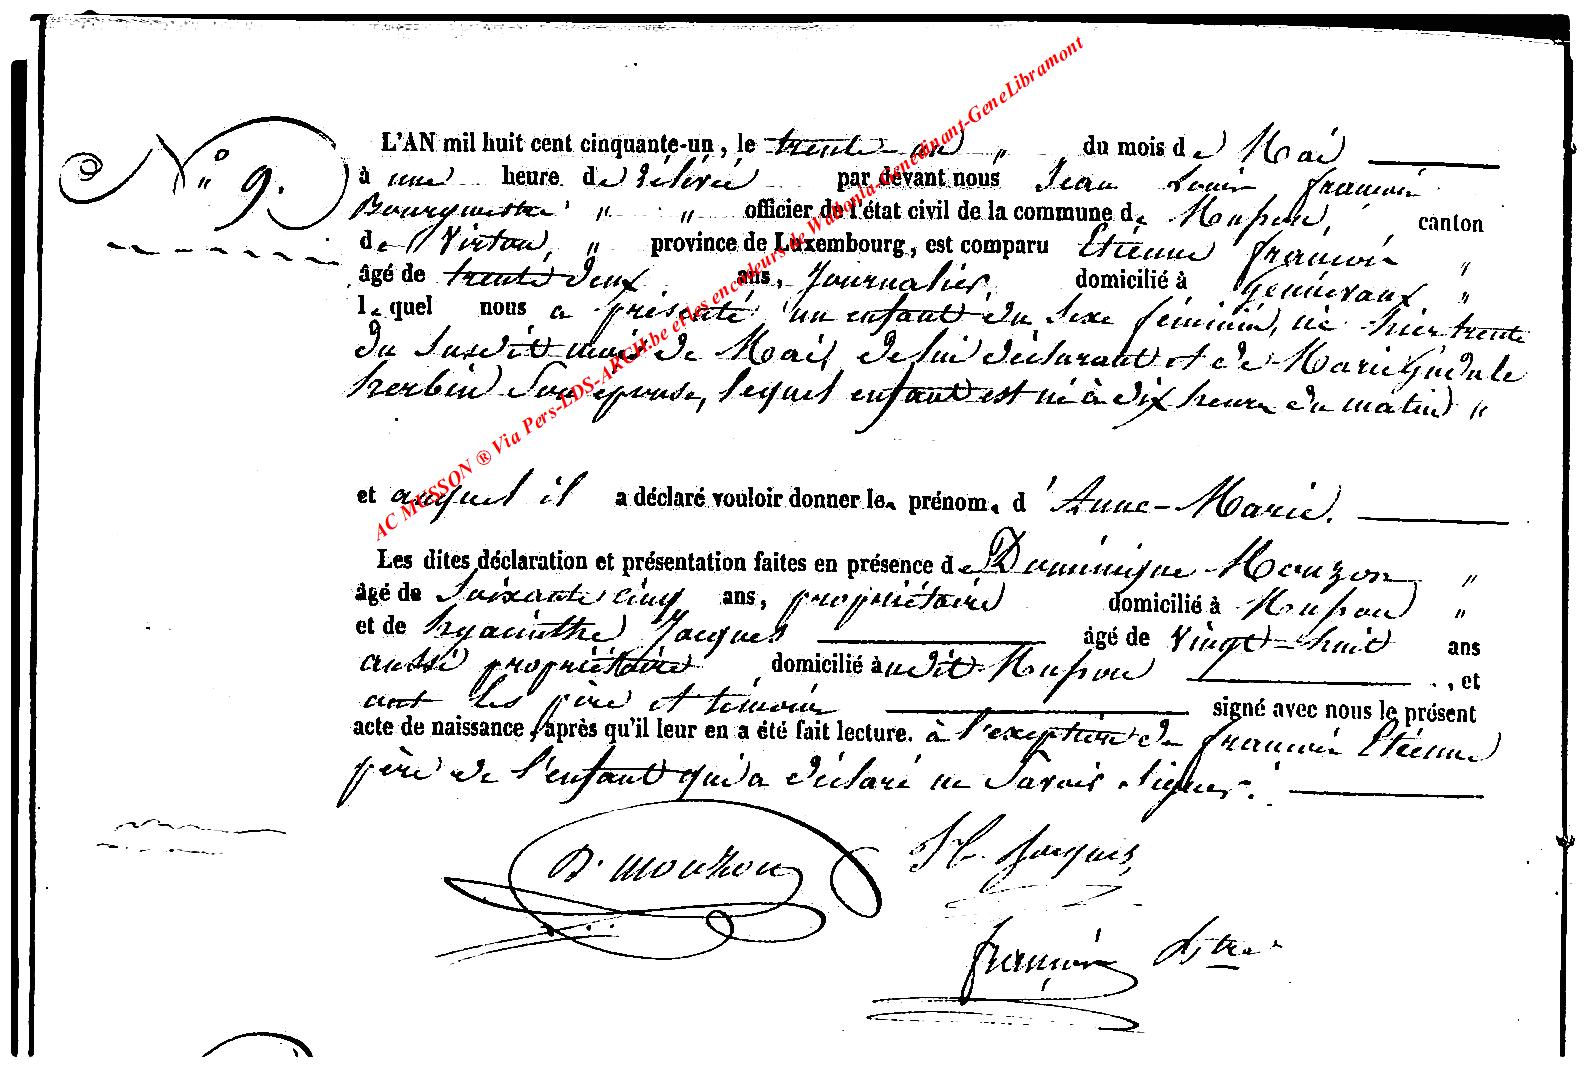 N° 9.
L'AN mil huit cent cinquante-un, le trente-un " " du mois de Mai
à une heure de rélévée par devant nous Jean Louis françois
Bourgmestre " " officier de l'état civil de la commune de Musson, canton
de Virton, " province de Luxembourg, est comparu Etienne françois "
âgé de trente deux ans, Journalier, domicilié à Gennevaux "
lequel nous a présenté un enfant du sexe féminin, né hier trente
du susdit mois de Mai, de lui déclarant et de Marie Gudule
herbin son épouse, lequel enfant est né à dix heures du matin "
et auquel il a déclaré vouloir donner le prénom d'Anne-Marie.
Les dites déclaration et présentation faites en présence de Dominique Mouzon "
âgé de Soixante cinq ans, propriétaire domicilié à Musson "
et de hyacinthe Jacques âgé de Vingt-huit ans
aussi propriétaire domicilié audit Musson , et
ont les père et témoins signé avec nous le présent
acte de naissance, après qu'il leur en a été fait lecture. à l'exeption de françois Etienne
père de l'enfant qui a déclaré ne savoir signer.
D. mouzon
H. Jacques
françois Bstre
AC MUSSON ® Via Pers-LDS-ARCH.be et les encodeurs de Wallonia-Genedinant-GeneLibramont